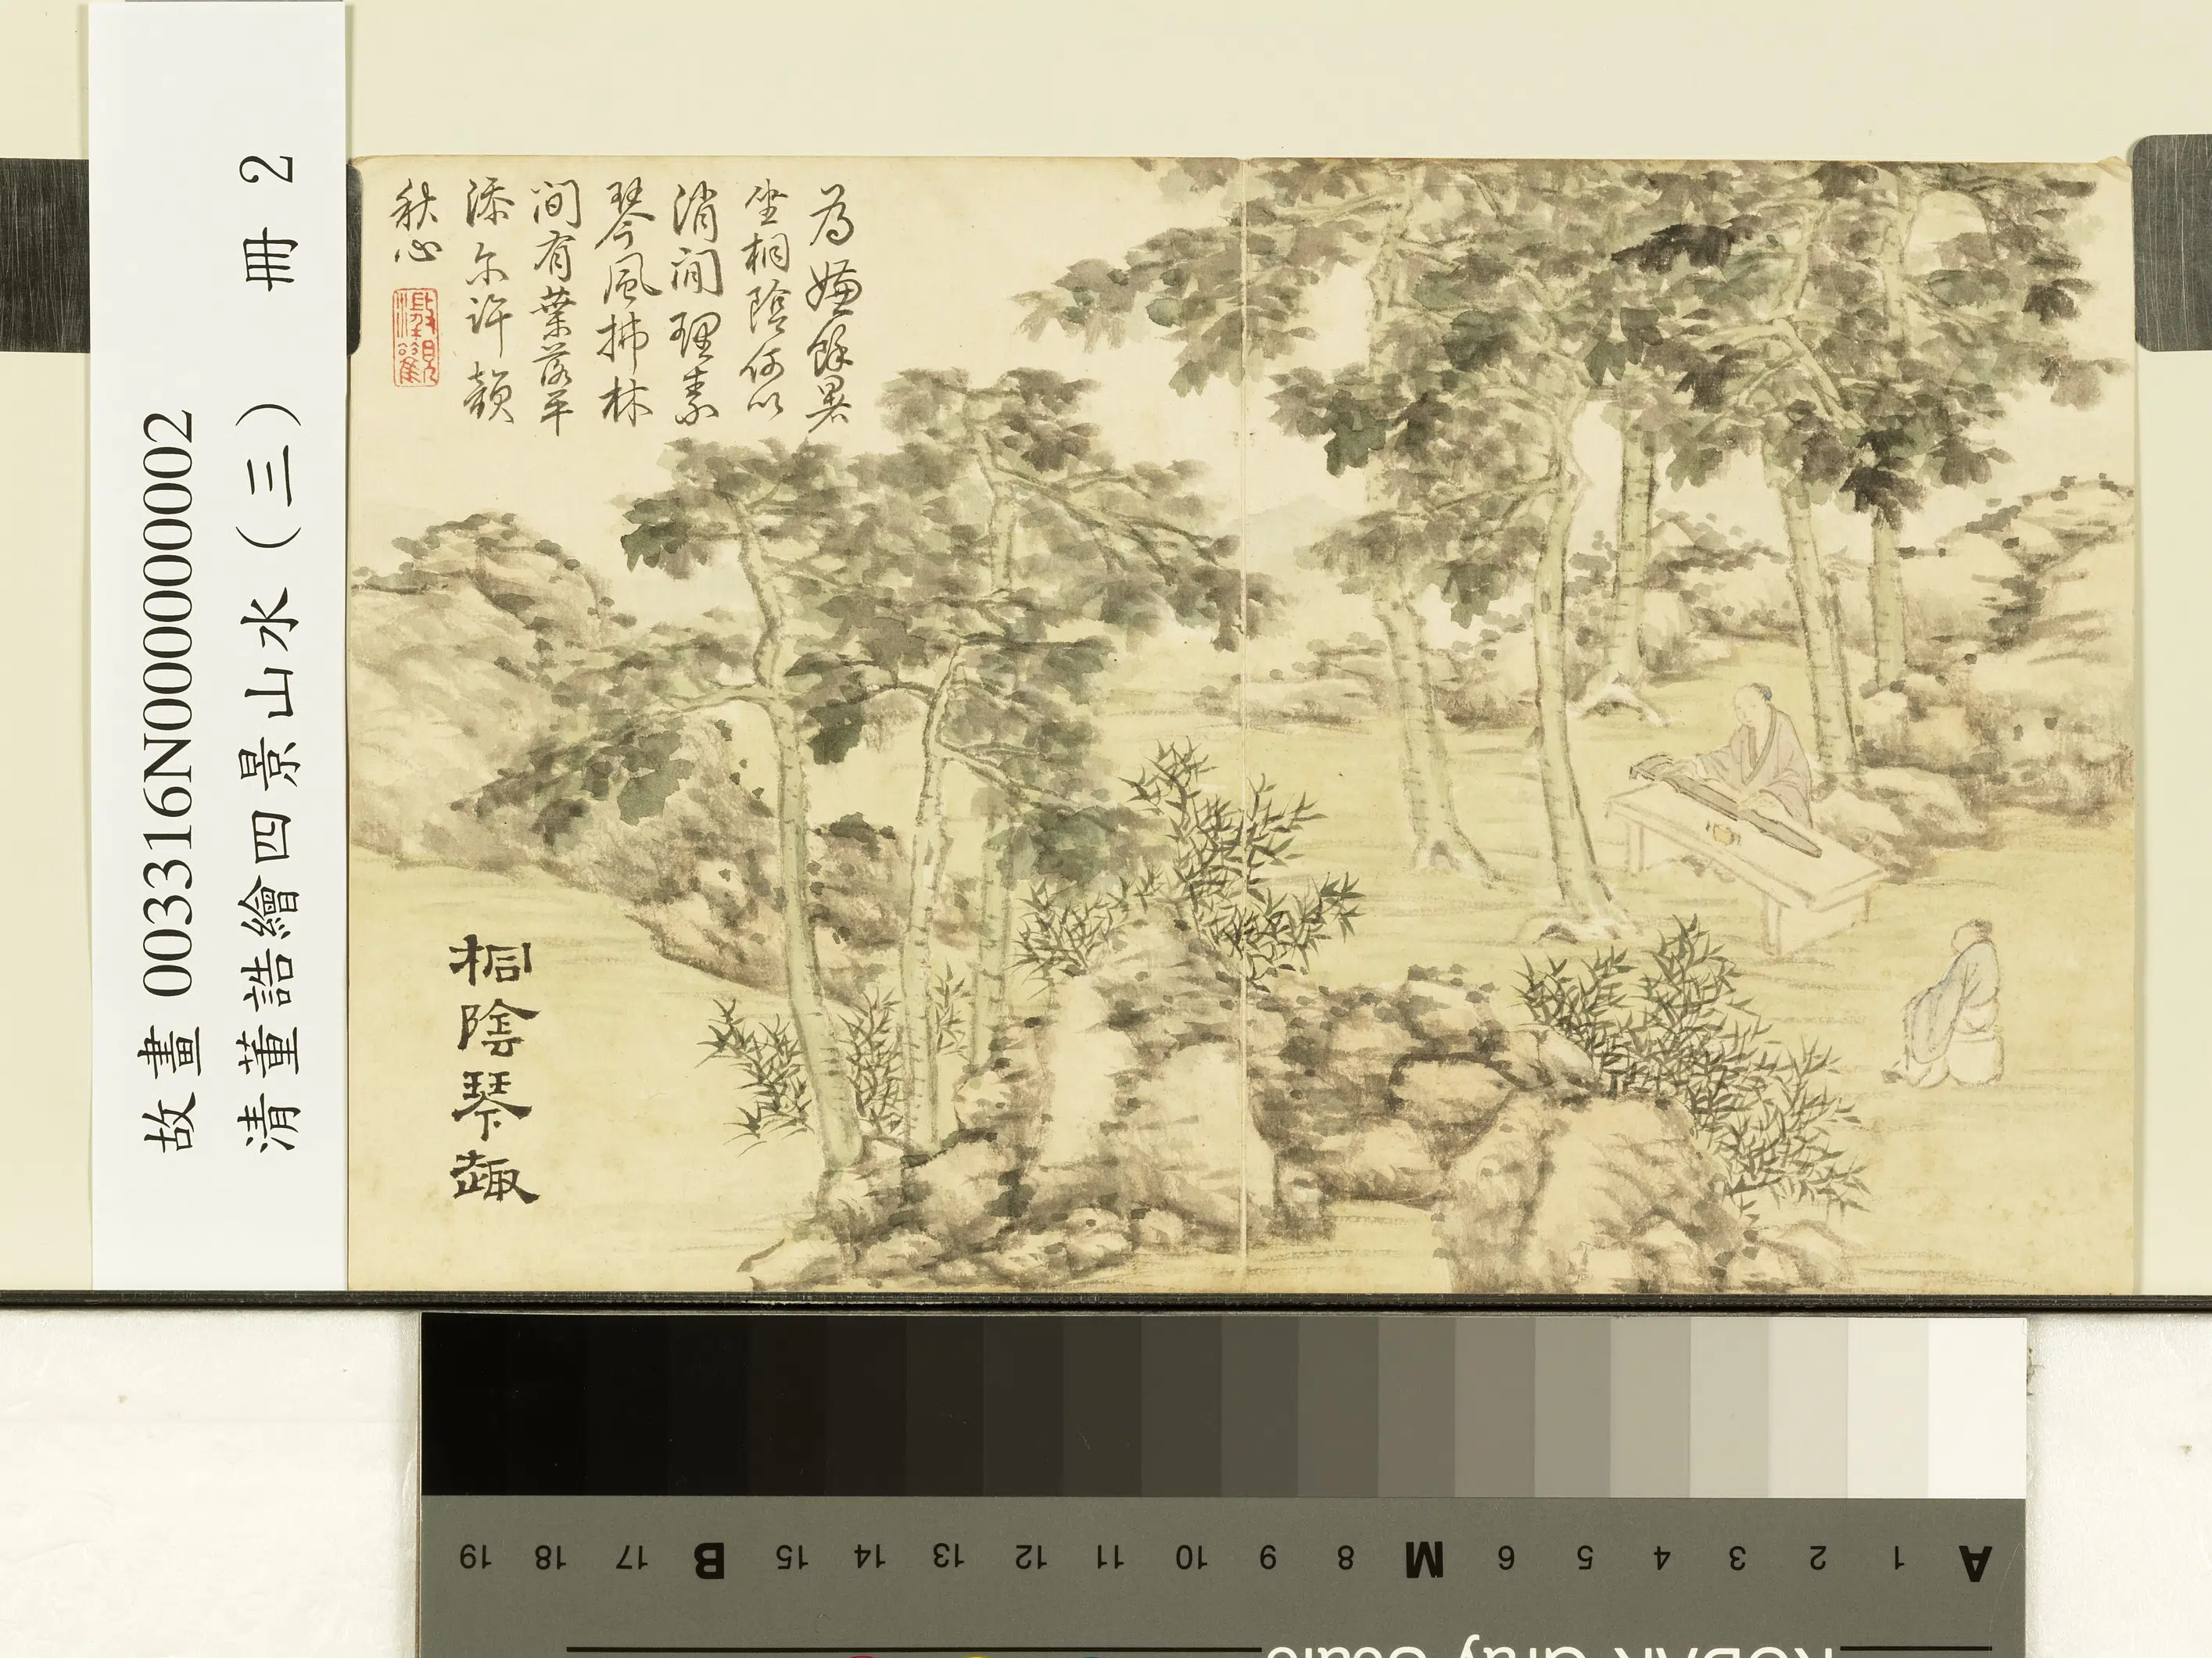 故畫 003316N000000002
清董誥繪四景山水（三） 冊 2
為嫌餘暑
坐桐陰何以
消閒理素
琴風拂林
間有葉落平
添尓許韻
秋心
桐陰琴趣
A 1 2 3 4 5 6 M 8 9 10 11 12 13 14 15 B 17 18 19